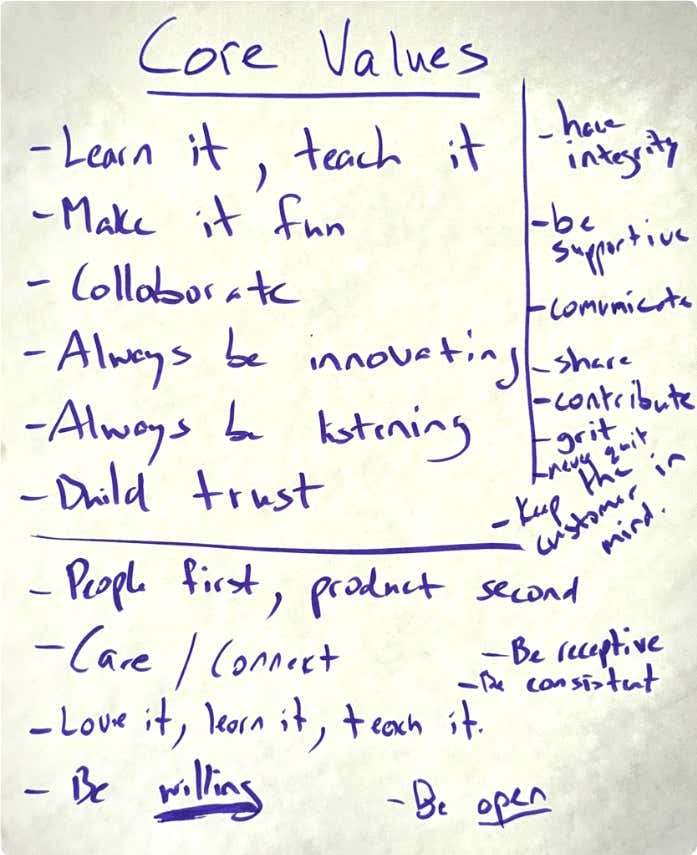 Core Values
- Learn it, teach it
- Make it fun
- Collaborate
- Always be innovating
- Always be listening
- Build trust
- have
integrity
- be
supportive
- comunicate
- share
- contribute
- grit
- never quit
- keep the
customer in
mind.
- People first, product second
- Care / Connect
- Be receptive
- Be consistent
- Love it, learn it, teach it.
- Be willing
- Be open